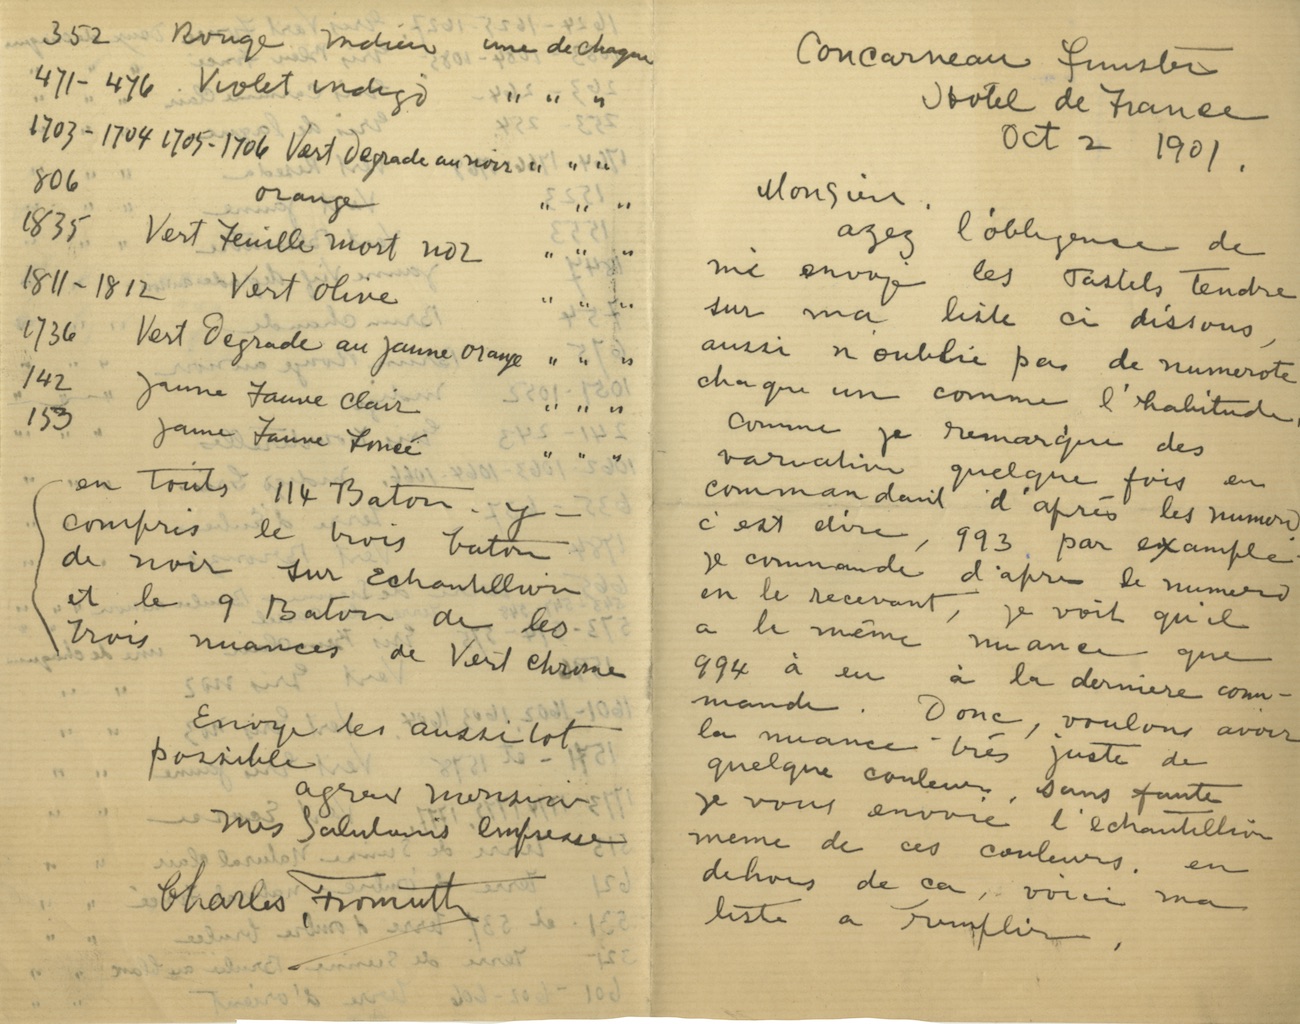 Concarneau Finistère
Hotel de France
Oct 2 1901.
Monsieur.
ayez l'obligense de
me envoyé les Pastels Tendre
sur ma liste ci dissous,
aussi n'oublie pas de numeroté
chaque un comme l'habitude,
Comme je remarque des
variation quelque fois en
commandant d'après les numero
c'est dire, 993 par example
je commande d'apre le numero
en le recevant, je voit qu'il
a le même nuance que
994 à eu à la derniere com-
mande. Donc, voulons avoir
la nuance très juste de
quelque couleur, sans faute
je vous envoie l'echantillion
meme de ces couleurs. en
dehous de ca, voici ma
liste a remplir,
352 Rouge Indien une de chaque
471-476 Violet indigo " " "
1703-1704 1705-1706 Vert Degrade au noir " " "
806 orange " " "
1835 Vert Feuille mort no2 " " "
1811-1812 Vert Olive " " "
1736 Vert Degrade au jaune orange " " "
142 jaune Fauve clair " " "
153 jaune Fauve Foncé " " "
en touts 114 Baton - y -
compris le trois baton
de noir sur Echantillion
et le 9 Baton de les
trois nuances de Vert chrome
Envoye les aussitot
possible
agreer monsieur
mes Salutanis Empresse
Charles Fromuth